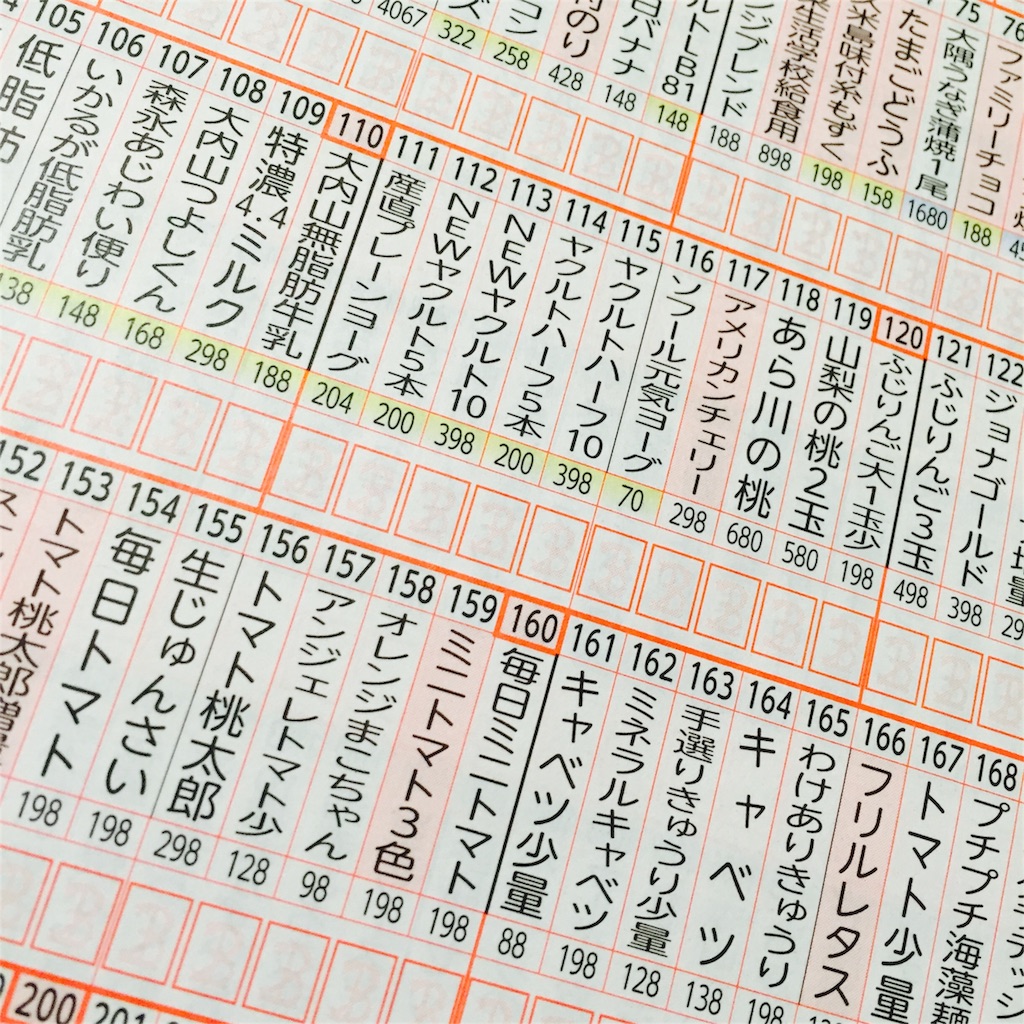 4067
322
258
428
148
ルトLB81
148
ンジブレンド
188
米生活学校給食用
898
久米島味付糸もずく
198
たまごどうふ
158
75
大隅うなぎ蒲焼1尾
1680
ファミリーチョコ
188
105
低脂肪
106
いかるが低脂肪乳
107
森永あじわい便り
148
108
大内山つよしくん
168
109
特濃4.4ミルク
298
110
大内山無脂肪牛乳
188
111
産直プレーンヨーグ
204
112
NEWヤクルト5本
200
113
NEWヤクルト10
398
114
ヤクルトハーフ5本
200
115
ヤクルトハーフ10
398
116
ソフール元気ヨーグ
70
117
アメリカンチェリー
298
118
あら川の桃
680
119
山梨の桃2玉
580
120
ふじりんご大1玉少
198
121
ふじりんご3玉
498
122
ジョナゴールド
398
152
153
トマト桃太郎増量
154
毎日トマト
198
155
生じゅんさい
198
156
トマト桃太郎
298
157
アンジェレトマト少
128
158
オレンジまこちゃん
98
159
ミニトマト3色
198
160
毎日ミニトマト
198
161
キャベツ少量
88
162
ミネラルキャベツ
198
163
手選りきゅうり少量
128
164
キャベツ
138
165
わけありきゅうり
198
166
フリルレタス
167
トマト少量
168
プチプチ海藻麺
200
201